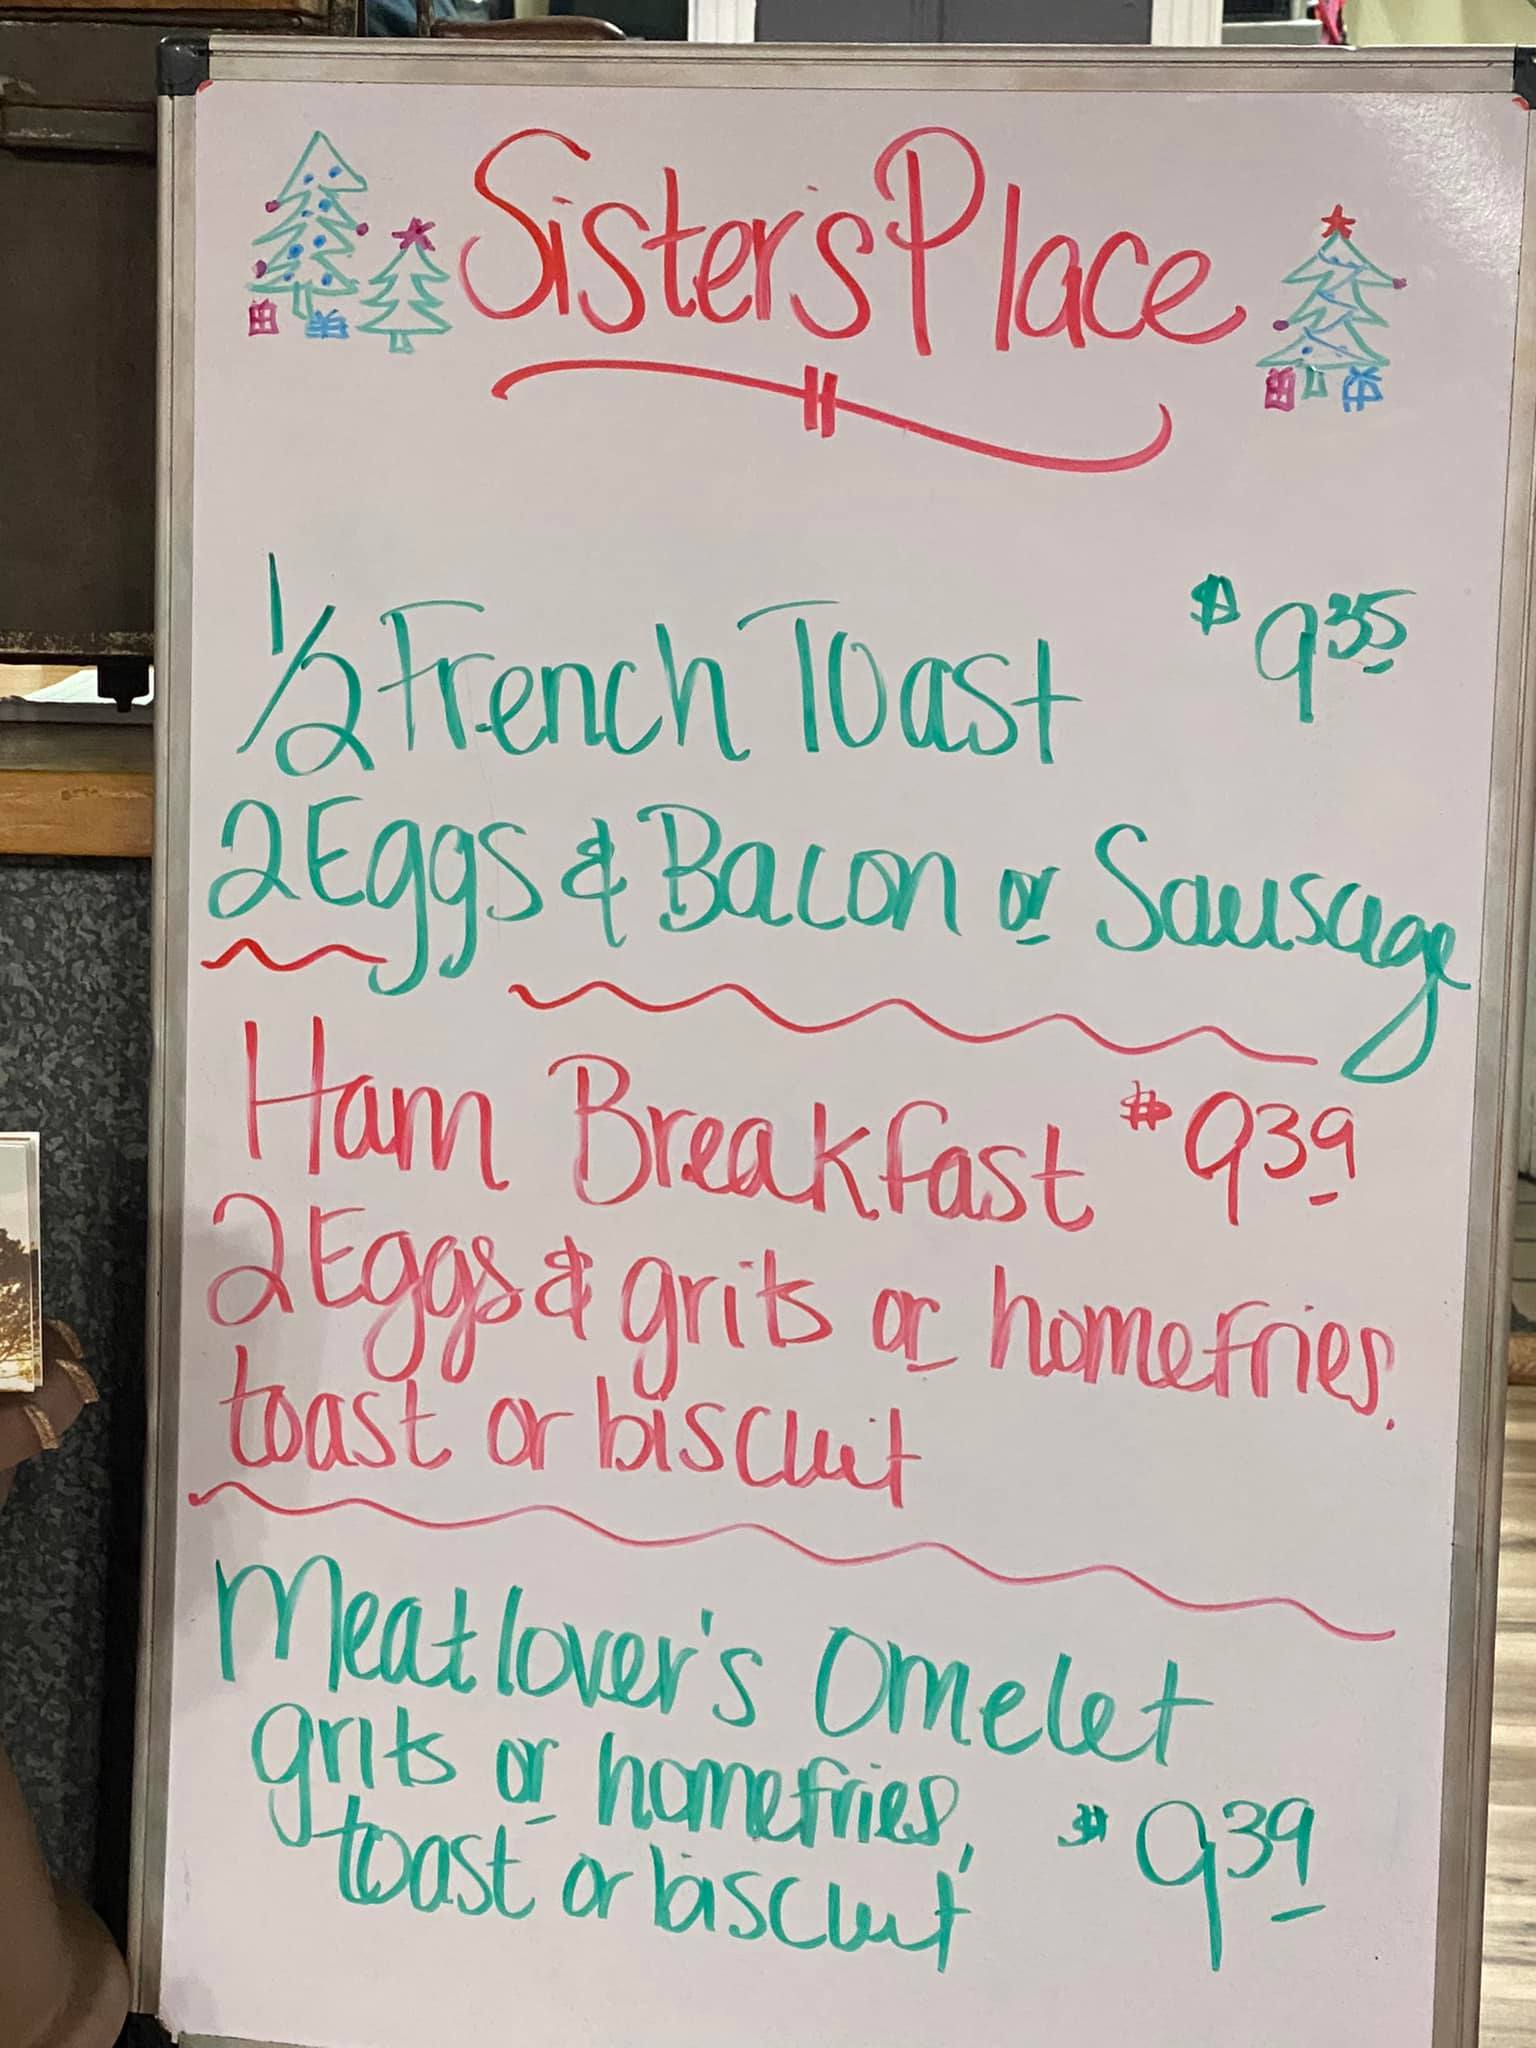 Sister's Place
1/2 French Toast $9.35
2 Eggs & Bacon or Sausage
Ham Breakfast $9.39
2 Eggs & grits or homefries,
toast or biscuit
Meatlover's Omelet
grits or homefries, $9.39
toast or biscuit